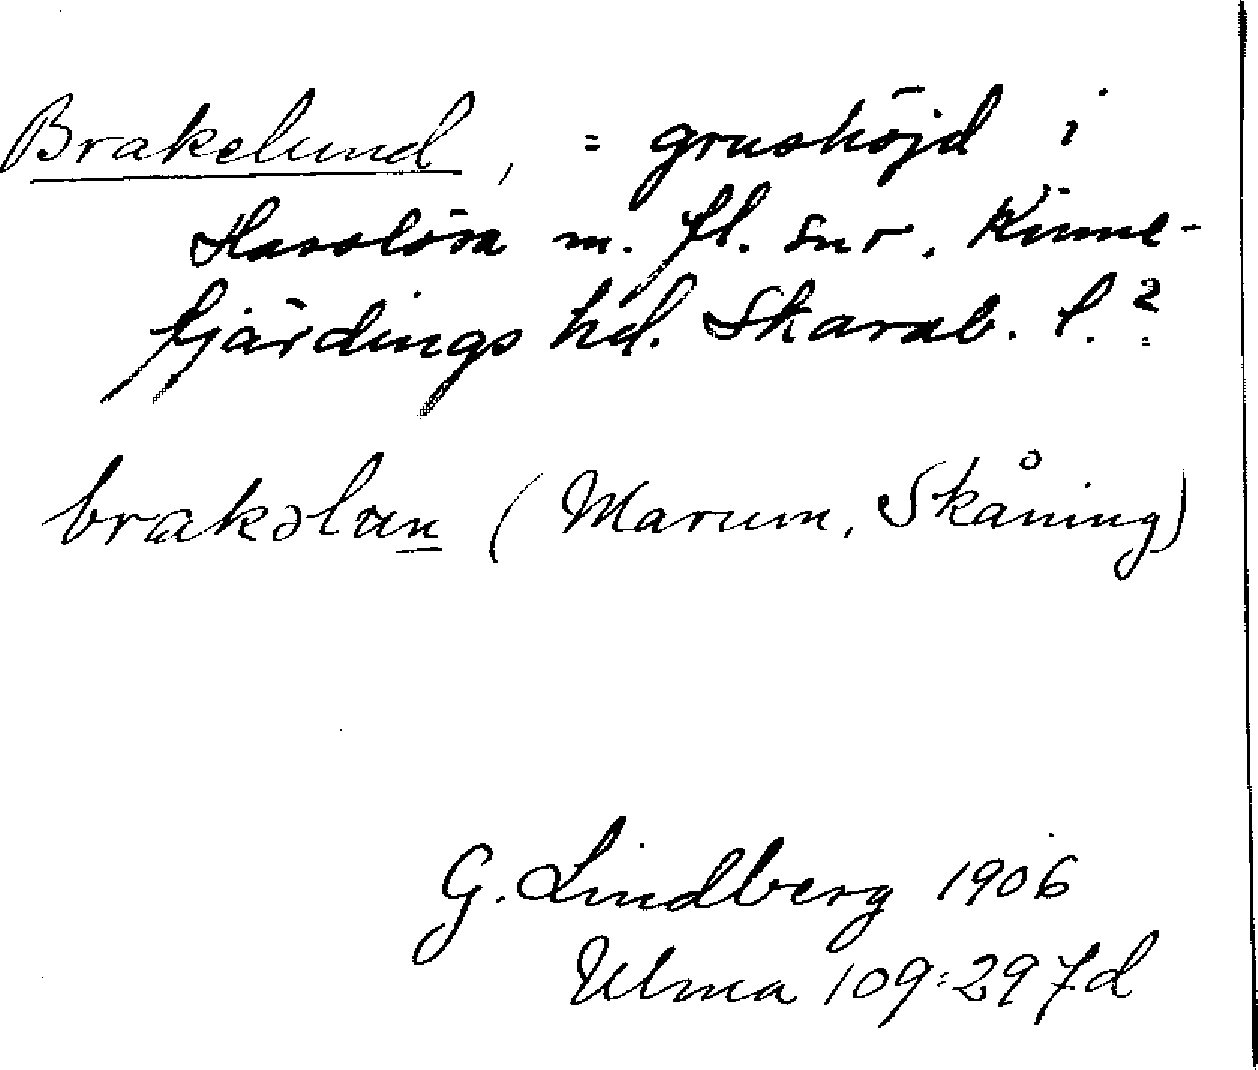 Brakelund, = grushöjd i
Hasslösa m. fl. snr. Kinne-
fjärdings hd. Skarab. l.?
brakəlun (Marum, Skåning)
G. Lindberg 1906
Ulma 109:297d